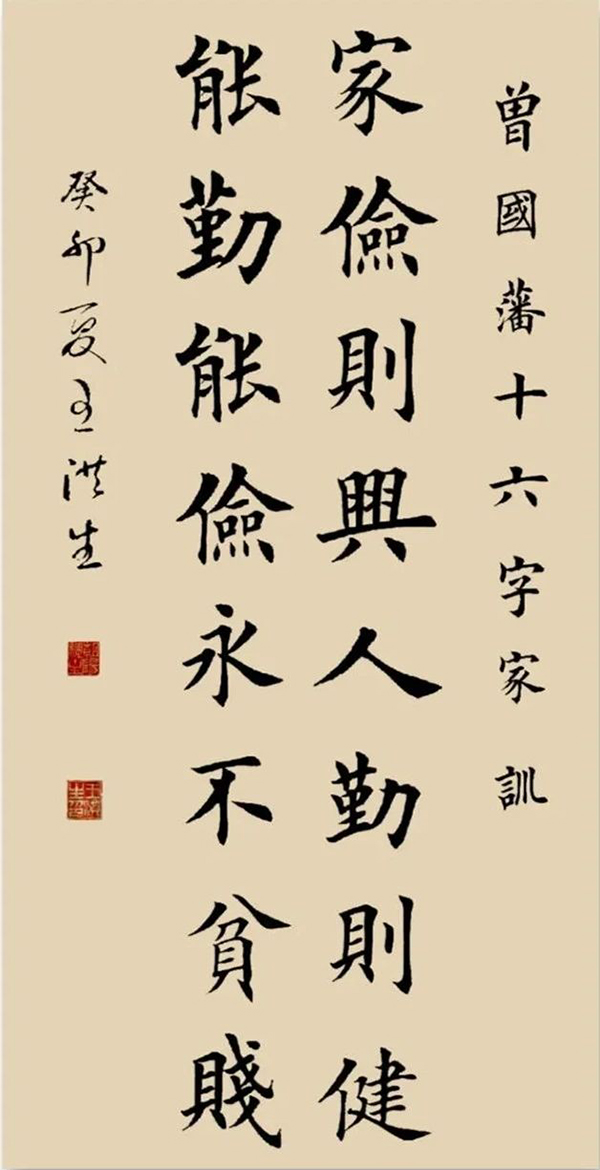 曾國藩十六字家訓
家儉則興人勤則健
能勤能儉永不貧賤
癸卯夏王洪生